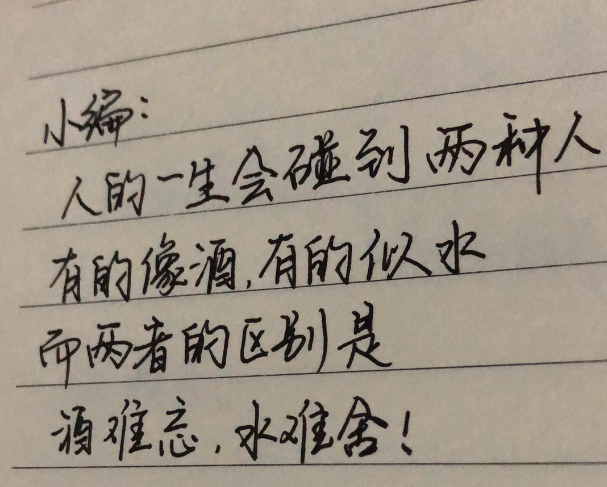 小编：
人的一生会碰到两种人
有的像酒，有的似水
而两者的区别是
酒难忘，水难舍！